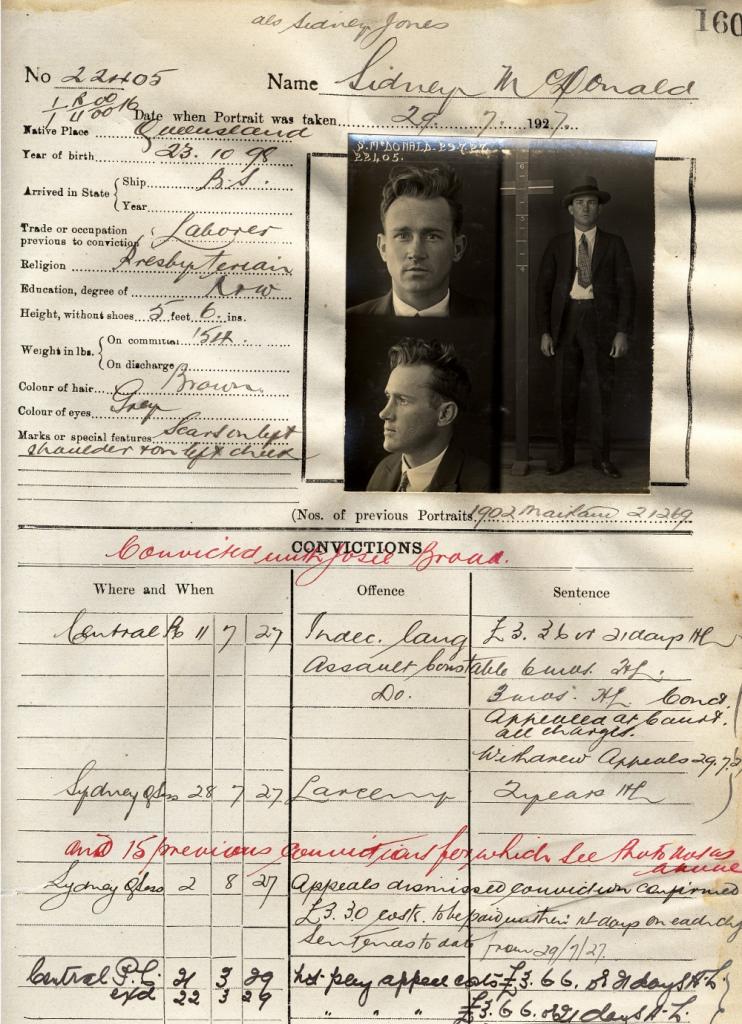 als Sidney Jones
160
No 22405 Name Sidney McDonald
Date when Portrait was taken 29. 7. 1927.
Native Place Queensland
Year of birth 23. 10 98
Arrived in State { Ship B.S.
Year
Trade or occupation previous to conviction } Laborer
Religion Presbyterian
Education, degree of R & W
Height, without shoes 5 feet 6 ins.
Weight in lbs. { On committal 154.
On discharge
Colour of hair Brown
Colour of eyes Grey
Marks or special features Scars on left
shoulder & on left cheek
S. McDONALD. 29.7.27
22405.
(Nos. of previous Portraits 1902 Maitland 21269
CONVICTIONS
Convicted with Josie Broad.
Where and When Offence Sentence
Central 11 7 27 Indec. lang £3. 3 6 or 21 days HL
Assault Constable 6 mos. HL.
Do. 3 mos. HL Conct.
Appealed at Court.
all charges.
Withdrew Appeals 29.7.27
Sydney Q Sess 28 7 27 Larceny 2 years HL
and 15 previous convictions for which see Photo Nos as
above
Sydney Q Sess 2 8 27 Appeals dismissed conviction confirmed
£3.3.0 costs. to be paid within 14 days on each chg
Sentences to date from 29/7/27.
Central P.C. 21 3 29 not pay appeal costs £3. 6 6. or 21 days H.L.
exd 22 3 29 " " " £3. 6 6. or 21 days H.L.